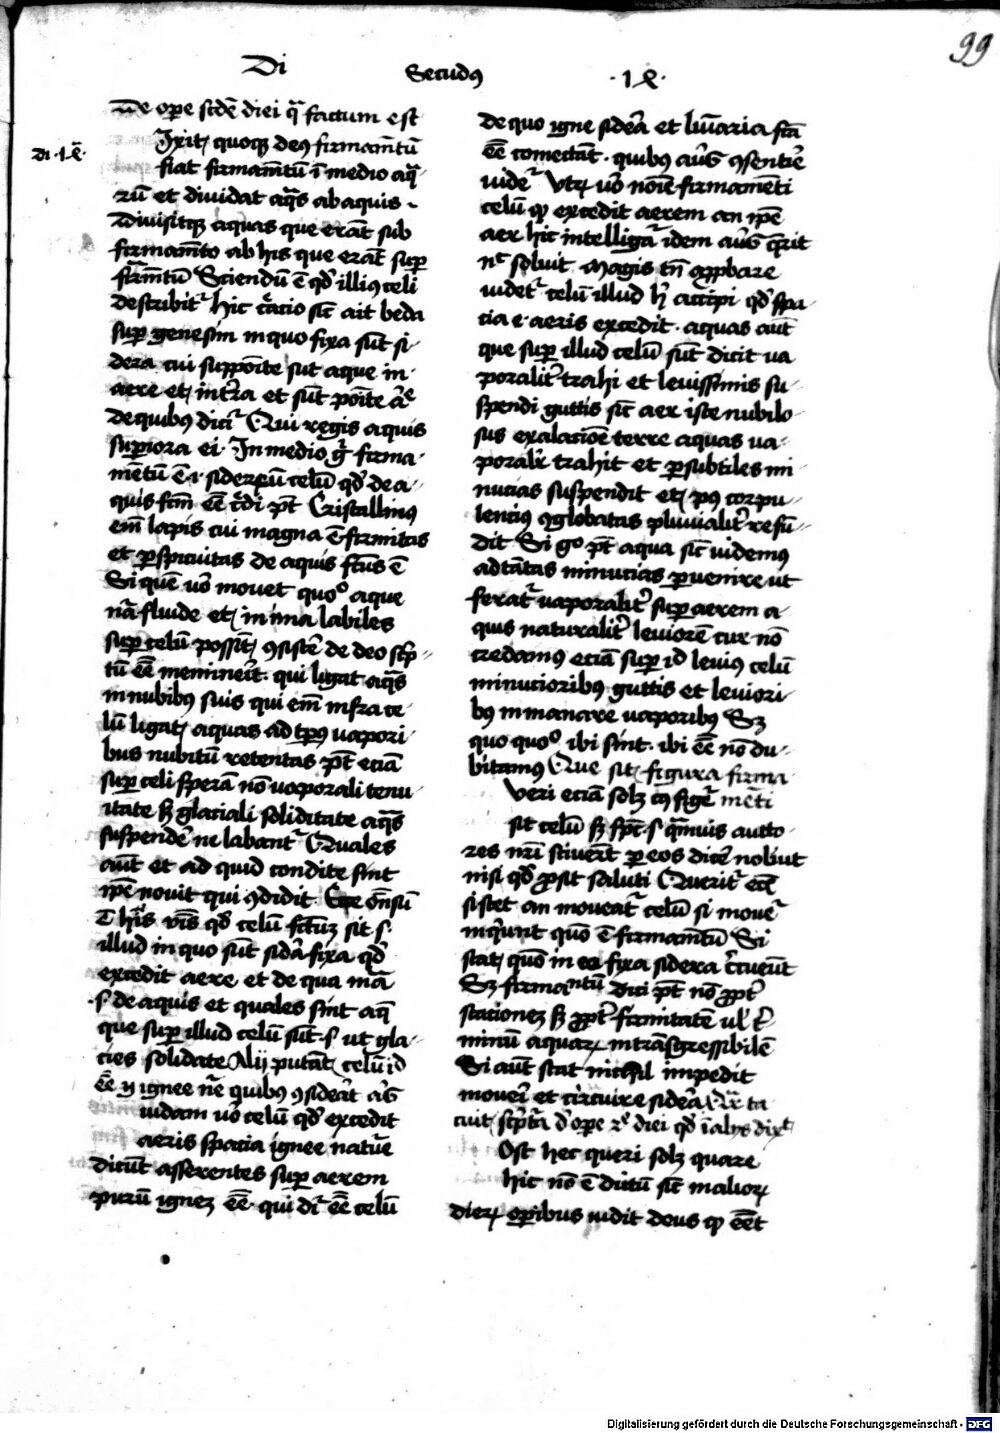 99
Di Secūdꝰ .1ℓ.
de oꝑe scd̄e diei qͣ factum est
di .1ℓ.
Ixit quoqꝫ deꝰ firmam̄tū
fiat firmam̄tū ī medio aqͣ
rū et dividat aqͣs ab aquis .
Divisitqꝫ aquas que erāt sub
firmam̄to ab his que erāt suꝑ
firm̄tū Sciendū ē qd̓ illiꝰ celi
describitͬ hic c̓acio sic̄ ait beda
suꝑ genesim in quo fixa sūt si
dera cui supposite sūt aque in
aere et in tr̄a et sūt posite a̓e
de quibꝰ dicit̓ Qui tegis aquis
suꝑiora eiꝰ In medio gͦ firma
mētū ē .i. sidereū celū qd̓ de a
quis fcm̄ eē c̓di pt̄ Cristallinꝰ
em̄ lapis cui magna ē firmitas
et ꝑspicuitas de aquis fcūs ē
Si quē vo̓ movet quoͦ aque
nāe fluide et in ima labiles
suꝑ celū possint ꝯsiste̓ de deo scp̄
tū eē memine̓it . qui ligat aqͣs
in nubibꝰ suis qui em̄ infra ce
lū ligat aquas ad tp̄ꝰ vapori
bus nubiū retentas pt̄ eciā
suꝑ celi sperā nō vaporali tenu
itate sꝫ glaciali soliditate aqͣs
suspende̓ ne labantͬ Quales
aūt et ad quid condite sint
ip̄e novit qui ꝯdidit
his v̓is qd̓ celū fcūꝫ sit s.
illud in quo sūt side̓a fixa qd̓
excedit aere et de qua mā
.s. de aquis et quales sint aqͣ
que suꝑ illud celū sūt .s. ut gla
cies solidate Alij putāt celū id
eē ignee nāe quibꝰ ꝯside̓āt
uidam vo̓ celū qd̓ excedit
aeris spacia ignee natu̓e
dicūt asserentes suꝑ aerem
purū igneꝫ eē . qui dr̄ eē celū
de quo igne side̓a et lūaria fc̄a
eē coniectāt . quibꝰ au̓g ꝯsenti̓e
videtͬ Utꝝ vo̓ noīe firmam̄eti
celū qd̓ excedit aerem an ip̄e
aer hic intelligat̓ idem au̓g q̄rit
nͨ solvit . Magis tn̄ aꝓbare
videtͬ celū illud hͨ accipi qd̓ spa
cia e aeris excedit . aquas aūt
que suꝑ illud celū sūt dicit va
poralit̓ trahi et levissimis su
spendi guttis sic̄ aer iste nubilo
sus exalacione terre aquas va
poralit̓ trahit et ꝑ subtiles mi
nucias suspendit et pꝰ corpu
lencius ꝯglobatas pluvialit̓ refū
dit Si gͦ pt̄ aqua sic̄ videmꝰ
ad tātas minucias ꝑvenire ut
feratͬ vaporalit̓ suꝑ aerem a
quis naturalit̓ leviorē cur nō
credamꝰ eciā suꝑ id leviꝰ celū
minucioribꝰ guttis et leviori
bꝰ inmanare vaporibꝰ Sꝫ
quo quoͦ ibi sint . ibi eē nō du
bitamꝰ Que sit figura firma
veri eciā solꝫ cꝰ figͬe mēti
sit celū sꝫ spc̄s s. qͣmuis aucto
res nr̄i scive̓īt ꝑ eos dice̓ nol̓uit
nisi qd̓ ꝓsit saluti Queritͬ ecē
si stet an moveatͬ celū si movetͬ
inqͥunt quō ē firmam̄tū Si
stat quō in eo fixa sidera c̓cueūt
Sꝫ firmamentū dici pt̄ nō ꝓpt̓
stacioneꝫ sꝫ ꝓpt̓ firmitatē ul̓ t̓
minū aquaꝝ intrāsgressibilē
Si aūt stat nichil impedit
moveri et circuire side̓a Qͬ ta
cuit scp̄tͣa d̓ oꝑe ẜe̓ diei qd̓ ī alijs dixͭ
Ost hec queri solꝫ quare
hic nō ē dictū sic̄ in alioꝝ
dieꝝ oꝑibus vidit deus qd̓ eēt
Digitalisierung gefördert durch die Deutsche Forschungsgemeinschaft - DFG